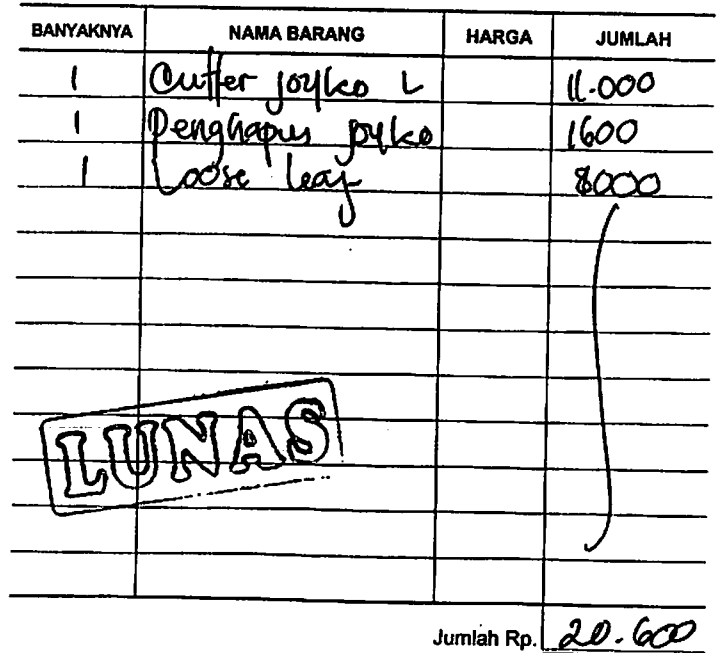 BANYAKNYA NAMA BARANG HARGA JUMLAH
1 Cutter joyko L 11.000
1 Penghapus joyko 1600
1 Loose leaf 8000
LUNAS
Jumlah Rp. 20.600